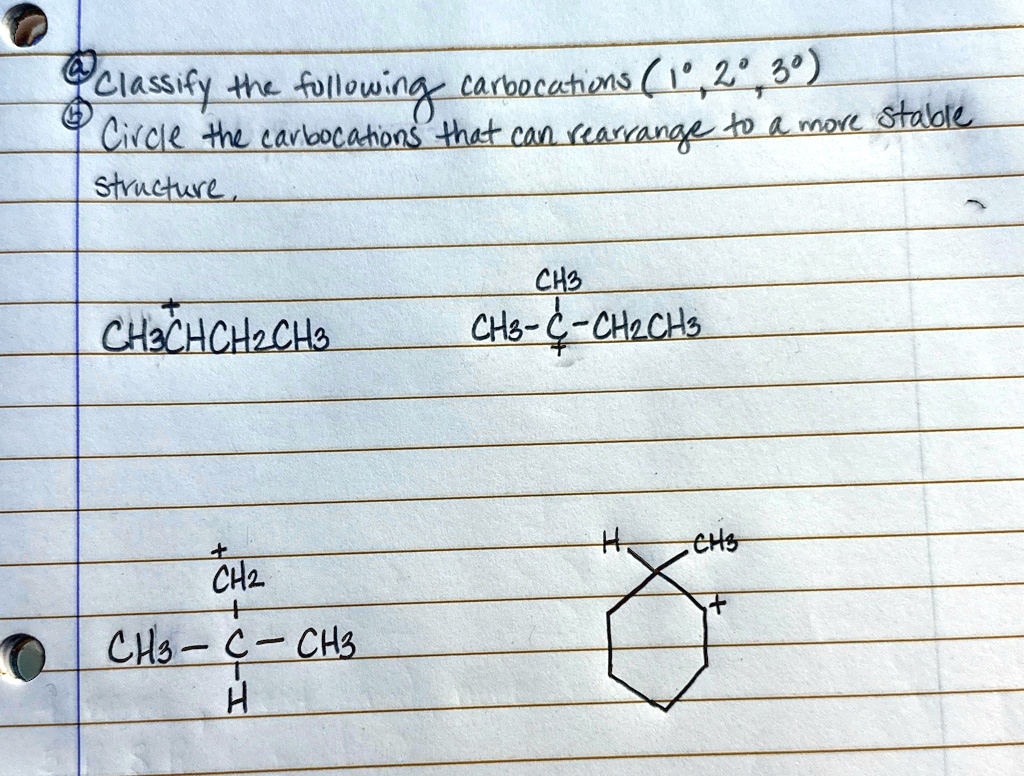 ⓐ Classify the following carbocations (1°, 2°, 3°)
ⓑ Circle the carbocations that can rearrange to a more stable
structure.
CH3
+
CH3CHCH2CH3
CH3-C-CH2CH3
+
+
H CH3
CH2
+
CH3-C-CH3
H